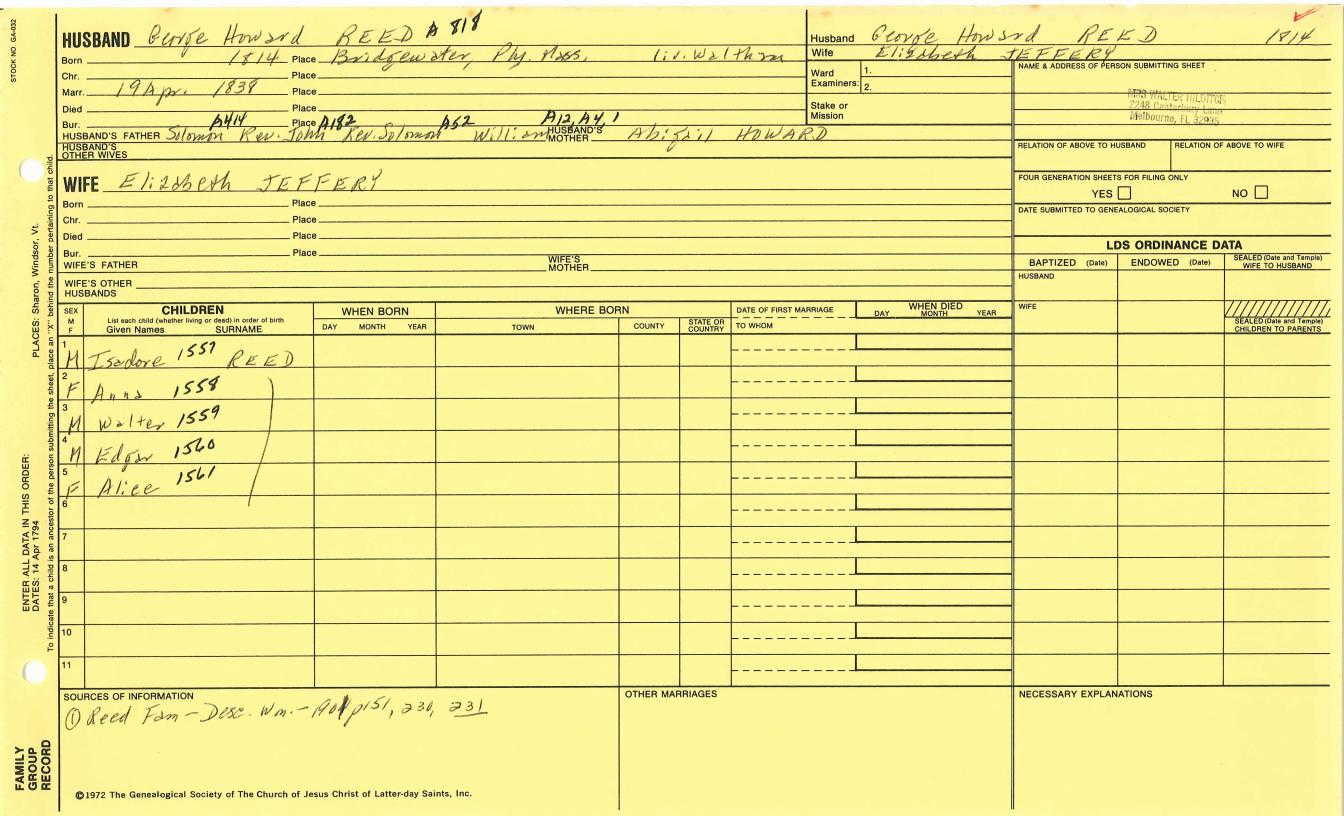 STOCK NO. GA-032
HUSBAND George Howard REED A 818
Born 1814 Place Bridgewater, Ply. Mass, liv. Waltham
Chr. Place
Marr. 19 Apr. 1838 Place
Died Place
Bur. Place
A414 A182 A52 A12, A4, 1
HUSBAND'S FATHER Solomon Rev. John Rev. Solomon William HUSBAND'S MOTHER Abigail HOWARD
HUSBAND'S OTHER WIVES
WIFE Elizabeth JEFFERY
Born Place
Chr. Place
Died Place
Bur. Place
WIFE'S FATHER WIFE'S MOTHER
WIFE'S OTHER HUSBANDS
Husband George Howard REED 1814
Wife Elizabeth JEFFERY
Ward Examiners: 1.
2.
Stake or Mission
NAME & ADDRESS OF PERSON SUBMITTING SHEET
MRS WALTER
2248 Canterbury Lane
Melbourne, FL 32935
RELATION OF ABOVE TO HUSBAND RELATION OF ABOVE TO WIFE
FOUR GENERATION SHEETS FOR FILING ONLY
YES NO
DATE SUBMITTED TO GENEALOGICAL SOCIETY
LDS ORDINANCE DATA
BAPTIZED (Date) ENDOWED (Date) SEALED (Date and Temple) WIFE TO HUSBAND
HUSBAND
WIFE
SEALED (Date and Temple) CHILDREN TO PARENTS
SEX M F
CHILDREN
List each child (whether living or dead) in order of birth
Given Names SURNAME
WHEN BORN
DAY MONTH YEAR
WHERE BORN
TOWN COUNTY STATE OR COUNTRY
DATE OF FIRST MARRIAGE
TO WHOM
WHEN DIED
DAY MONTH YEAR
1 M Isadore 1557 REED
2 F Anna 1558
3 M Walter 1559
4 M Edgar 1560
5 F Alice 1561
6
7
8
9
10
11
SOURCES OF INFORMATION
① Reed Fam - Desc. Wm. - 1901 p151, 230, 231
OTHER MARRIAGES
NECESSARY EXPLANATIONS
©1972 The Genealogical Society of The Church of Jesus Christ of Latter-day Saints, Inc.
FAMILY GROUP RECORD
ENTER ALL DATA IN THIS ORDER:
DATES: 14 Apr 1794
PLACES: Sharon, Windsor, Vt.
To indicate that a child is an ancestor of the person submitting the sheet, place an "X" behind the number pertaining to that child.